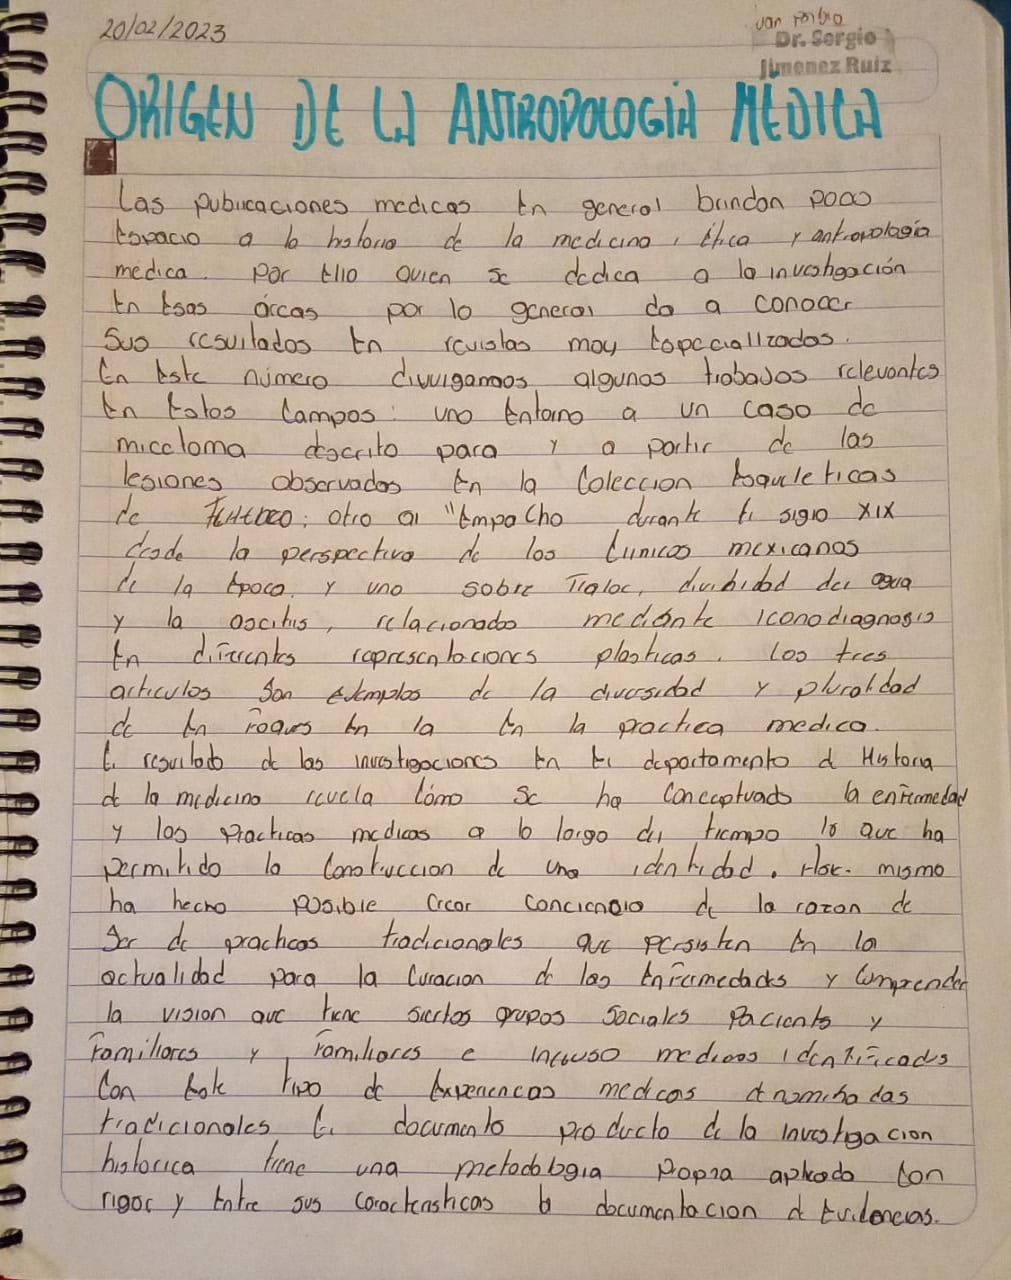 20/02/2023
Dr. Sergio
Jimenez Ruiz
ORIGEN DE LA ANTROPOLOGIA MÉDICA
Las publicaciones medicas En general brindan poco
Espacio a la historia de la medicina, Ética y antropologia
medica. Por Ello quien se dedica a la investigación
En Esas árcas por lo general da a conocer
Sus resultados En revistas muy Especializados.
En Este número divulgamos algunos trabajos relevantes
En Estos Campos: uno Entorno a un caso de
micetoma descrito para y a partir de las
lesiones observados En la Coleccion Esqueleticas
de otro al "Empacho durante El siglo XIX
desde la perspectiva de los Clinicos mexicanos
de la Epoca, y uno sobre Tlaloc, divinidad del agua
y la ascitis, relacionados mediánte iconodiagnosis
En diferentes representaciones plasticas. Los tres
articulos son ejemplos de la diversidad y pluralidad
de En foques En la En la practica medica.
El resultado de las investigaciones En El departamento d Historia
d la medicina revela Cómo se ha Conceptuado la enfermedad
y los practicas medicas a lo largo del tiempo lo que ha
permitido la Construccion de una identidad. mismo
ha hecho posible Crear conciencia de la razon de
Ser de practicas tradicionales que persisten En la
actualidad para la Curacion de las Enfermedades y Comprender
la vision que tiene siertos grupos Sociales Pacientes y
Familiares y familiares e incluso medicos identificados
Con Este tipo de Experiencas medicas denominadas
tradicionales El documento producto de la investigacion
historica tiene una metodologia Popia aplicada Con
rigor y Entre sus caracteristicas la documentacion d Evidencias.